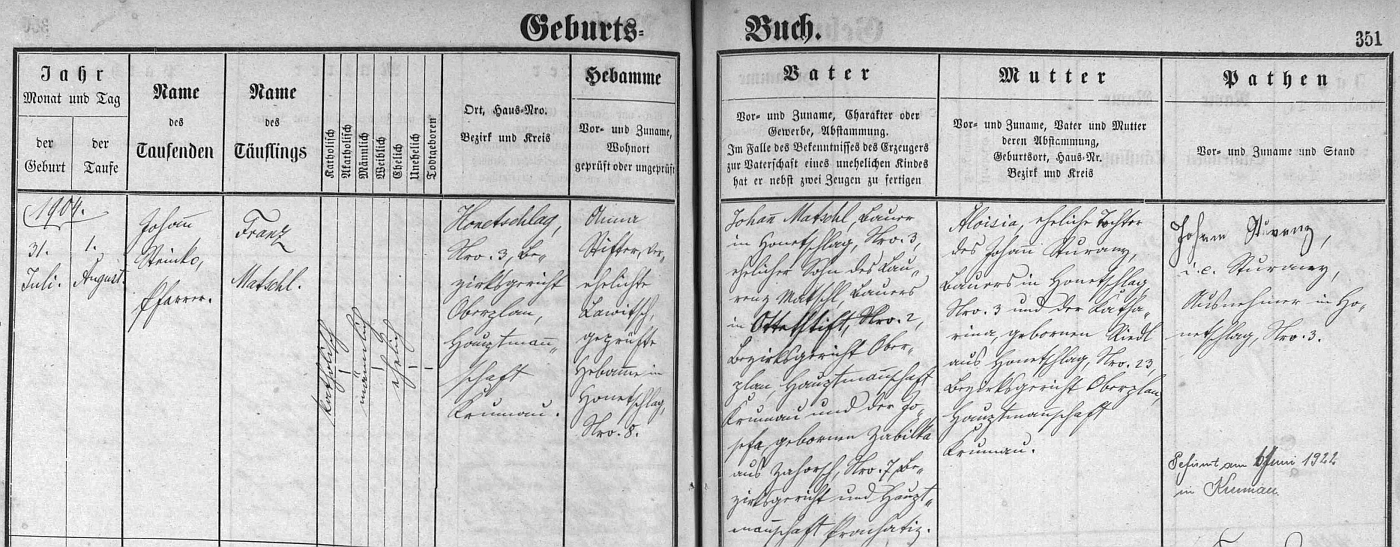 Geburts- Buch. 351
Jahr
Monat und Tag
der Geburt
der Taufe
Name
des
Taufenden
Name
des
Täuflings
Katholisch
Akatholisch
Männlich
Weiblich
Ehelich
Unehelich
Todtgeboren
Ort, Haus-Nro.
Bezirk und Kreis
Hebamme
Vor- und Zuname,
Wohnort
geprüft oder ungeprüft
Vater
Vor- und Zuname, Charakter oder
Gewerbe, Abstammung.
Im Falle des Bekenntnisses des Erzeugers
zur Vaterschaft eines unehelichen Kindes
hat er nebst zwei Zeugen zu fertigen
Mutter
Vor- und Zuname, Vater und Mutter
deren Abstammung,
Geburtsort, Haus-Nr.
Bezirk und Kreis
Pathen
Vor- und Zuname und Stand
1904.
31.
Juli.
1.
August.
Johann
Steinko,
Pfarrer.
Franz
Matschl.
katholisch
männlich
ehelich
Honetschlag,
Nro. 3, Be-
zirksgericht
Oberplan,
Hauptmann-
schaft
Krumau.
Anna
Stifter, ver-
ehelichte
Lawitsch,
geprüfte
Hebamme in
Honetschlag,
Nro. 8.
Johann Matschl, Bauer
in Honetschlag, Nro. 3,
ehelicher Sohn des Lau-
renz Matschl, Bauers
in Ottetstift, Nro. 2,
Bezirksgericht Ober-
plan, Hauptmannschaft
Krumau und der Jo-
sefa, gebornen Zabilka
aus Zahorsch, Nro. 7, Be-
zirksgericht und Haupt-
mannschaft Prachatiz.
Aloisia, eheliche Tochter
des Johann Sturany,
Bauers in Honetschlag,
Nro. 3 und der Katha-
rina, gebornen Riedl
aus Honetschlag, Nro. 23,
Bezirksgericht Oberplan,
Hauptmannschaft
Krumau.
Johann
i.e. Sturaney,
Ausnehmer in Ho-
netschlag, Nro. 3.
am Juni 1922
in Krumau